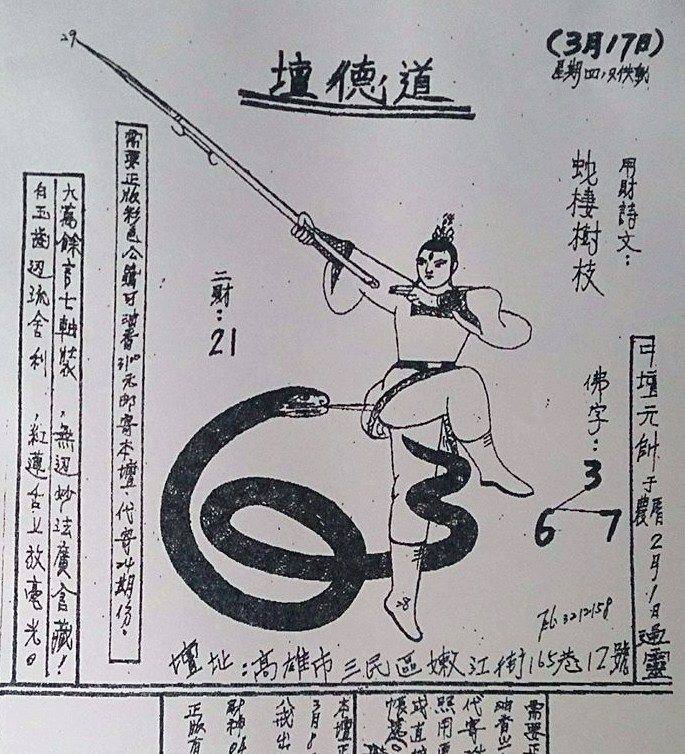 (3月17日)
星期四
道德壇
29
用財詩文:
蛇棲樹枝
佛字:
3
6 7
二財:
21
中壇元帥于農曆2月1日過靈
需要正版彩色公籤可油香310元郵寄本壇,代寄24期份.
六萬餘言七軸裝,無边妙法廣含藏!
白玉齒边流舍利,紅蓮舌上放毫光。
28
Tel 3212158
壇址:高雄市三民區嫩江街165巷12號
需要正
油香
代寄
照用
或直
本壇正
3月8
財神
正版有